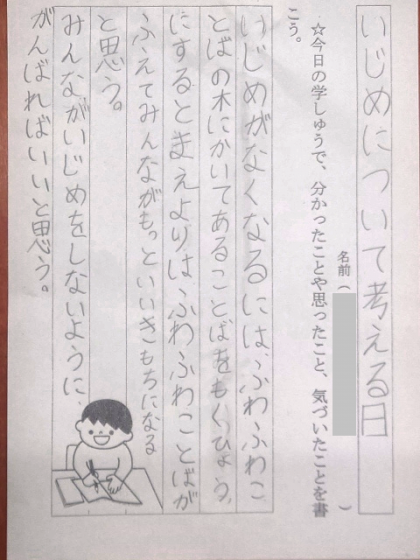 いじめについて考える日
名前（　　　）
☆今日の学しゅうで、分かったことや思ったこと、気づいたことを書
こう。
いじめがなくなるには、ふわふわこ
とばの木にかいてあることばをもくひょう
にするとまえよりは、ふわふわことばが
ふえてみんながもっといいきもちになる
と思う。
みんながいじめをしないように、
がんばればいいと思う。